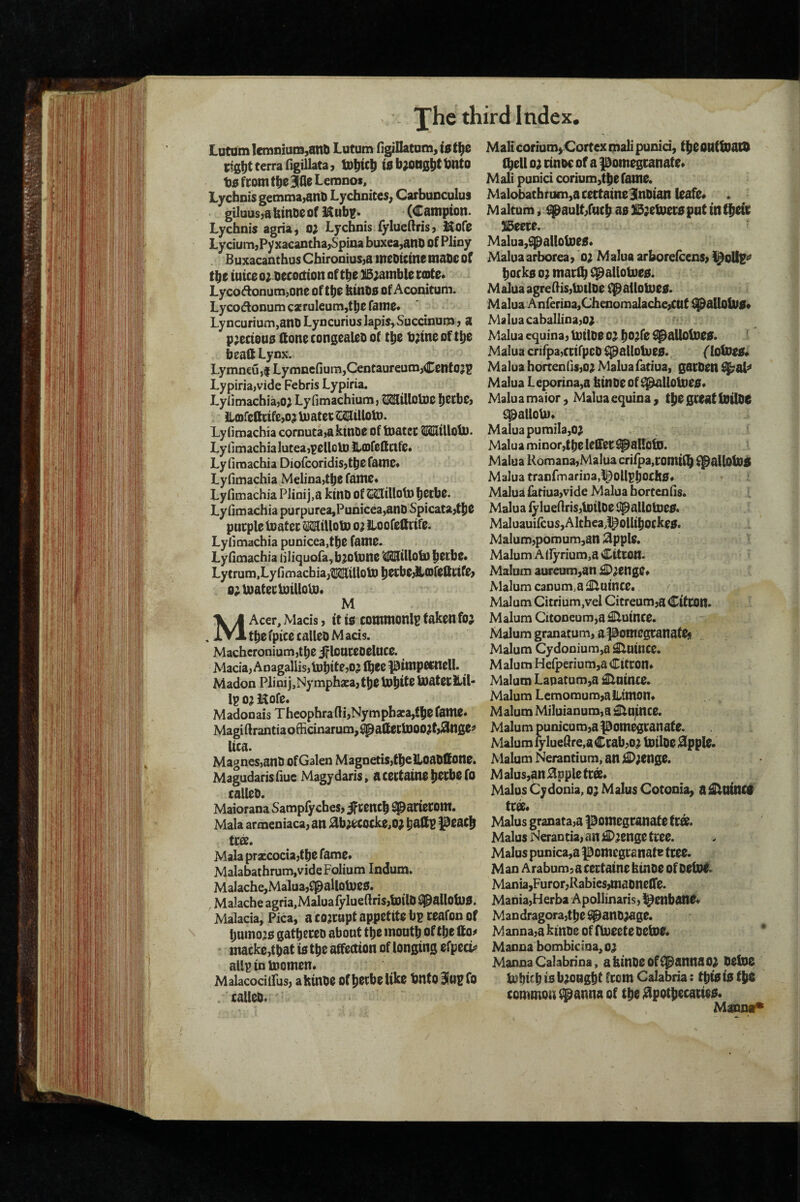 The third Index.
Lutum lemnium,and Lutum sigillatum, is the
right terra sigillata, which is brought vnto
vs from the Ile Lemnos,
Lychnis gemma,and Lychnites, Carbunculus
giluus,a kinde of Ruby. (Campion.
Lychnis agria, or Lychnis syluestris, Rose
Lycium,Pyxacantha,Spina buxea,and of Pliny
Buxacanthus Chironius,a medicine made of
the iuice or decoction of the Bramble roote.
Lycoctonum,one of the kinds of Aconitum.
Lycoctonum cæruleum,the same.
Lyncurium,and Lyncurius lapis, Succinum, a
precious stone congealed of the vrine of the
beast Lynx.
Lymneſi,& Lymnesium,Centaureum,Centory
Lypiria,vide Febris Lypiria.
Lysimachia,or Lysimachium, Willowe herbe,
Loosestrife,or water Willow.
Lysimachia cornuta,a kinde of water Willow.
Lysimachia lutea,yellow Loosestrife.
Lysimachia Dioscoridis,the same.
Lysimachia Melina,the same.
Lysimachia Plinij,a kind of Willow herbe.
Lysimachia purpurea,Punicea,and Spicata,the
purple water Willow or Loosestrife.
Lysimachia punicea,the same.
Lysimachia siliquosa,browne Willow herbe.
Lytrum,Lysimachia,Willow herbe,Loosestrife,
or water willow.
M
MAcer, Macis, it is commonly taken for
the spice called Macis.
Macheronium,the Flouredeluce.
Macia, Anagallis,white,or shee Pimpernell.
Madon Plinij,Nymphæa,the white water Lil-
ly or Rose.
Madonais Theophrasti,Nymphæa,the same.
Magistrantia officinarum,Masterwoort,Ange-
lica.
Magnes,and of Galen Magnetis,the Loadstone.
Magudaris siue Magydaris, a certaine herbe so
called.
Maiorana Sampsyches, French Marierom.
Mala armeniaca, an Abrecocke,or hasty Peach
tree.
Mala præcocia,the same.
Malabathrum,vide Folium Indum.
Malache,Malua,Mallowes.
Malache agria,Malua sylvestris,wild Mallows.
Malacia, Pica, a corrupt appetite by reason of
humors gathered about the mouth of the sto-
macke,that is the affection of longing especi-
ally in women.
Malacocissus, a kinde of herbe like vnto Iuy so
called.
Mali corium,Cortex mali punici, the outtward
shell or rinde of a Pomegranate.
Mali punici corium,the same.
Malobathrum,a certaine Indian leafe.
Maltum, Mault,such as Brewers put in their
Beere.
Malua,Mallowes.
Malua arborea, or Malua arborescens, Holly-
hocks or marsh Mallowes.
Malua agrestis,wilde Mallowes.
Malua Anserina,Chenomalache,cut Mallows.
Malua caballina,or
Malua equina, wilde or horse Mallowes.
Malua crispa,crisped Mallowes. (lowes.
Malua hortensis,or Malua satiua, garden Mal-
Malua Leporina,a kinde of Mallowes.
Malua maior, Malua equina, the great wilde
Mallow.
Malua pumila,or
Malua minor,the lesser Mallow.
Malua Romana,Malua crispa,romish Mallows
Malua transmarina,Hollyhocks.
Malua satiua,vide Malua hortensis.
Malua sylueſtris,wilde Mallowes.
Maluauiscus,Althea,Hollihockes.
Malum,pomum,an Apple.
Malum Assyrium,a Citron.
Malum aureum,an Orenge.
Malum canum,a Quince.
Malum Citrium,vel Citreum,a Citron.
Malum Citoneum,a Quince.
Malum granatum, a Pomegranate,
Malum Cydonium,a Quince.
Malum Hesperium,a Citron.
Malum Lanatum,a Quince.
Malum Lemomum,a Limon.
Malum Miluianum,a Quince.
Malum punicum,a Pomegranate.
Malum sylueſtre,a Crab,or wilde Apple.
Malum Nerantium, an Orenge.
Malus,an Apple tree.
Malus Cydonia, or Malus Cotonia, a Quince
tree.
Malus granata,a Pomegranate tree.
Malus Nerantia, an Orenge tree.
Malus punica,a Pomegranate tree.
Man Arabum,a certaine kinde of dewe.
Mania,Furor,Rabies,madnesse.
Mania,Herba Apollinaris, Henbane.
Mandragora,the Mandrage.
Manna,a kinde of sweete dewe.
Manna bombicina,or
Manna Calabrina, a kinde of Manna or dewe
which is brought from Calabria: this is the
common Manna of the Apothecaries.
Manna